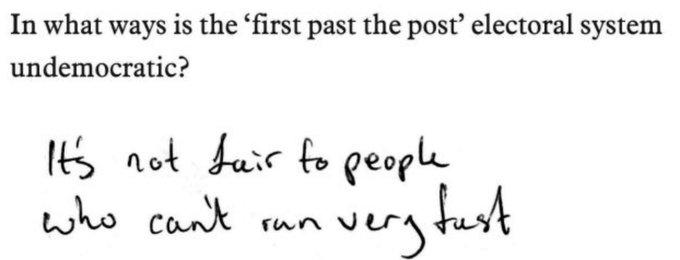 In what ways is the ‘first past the post’ electoral system
undemocratic?
It's not fair to people
who can't run very fast